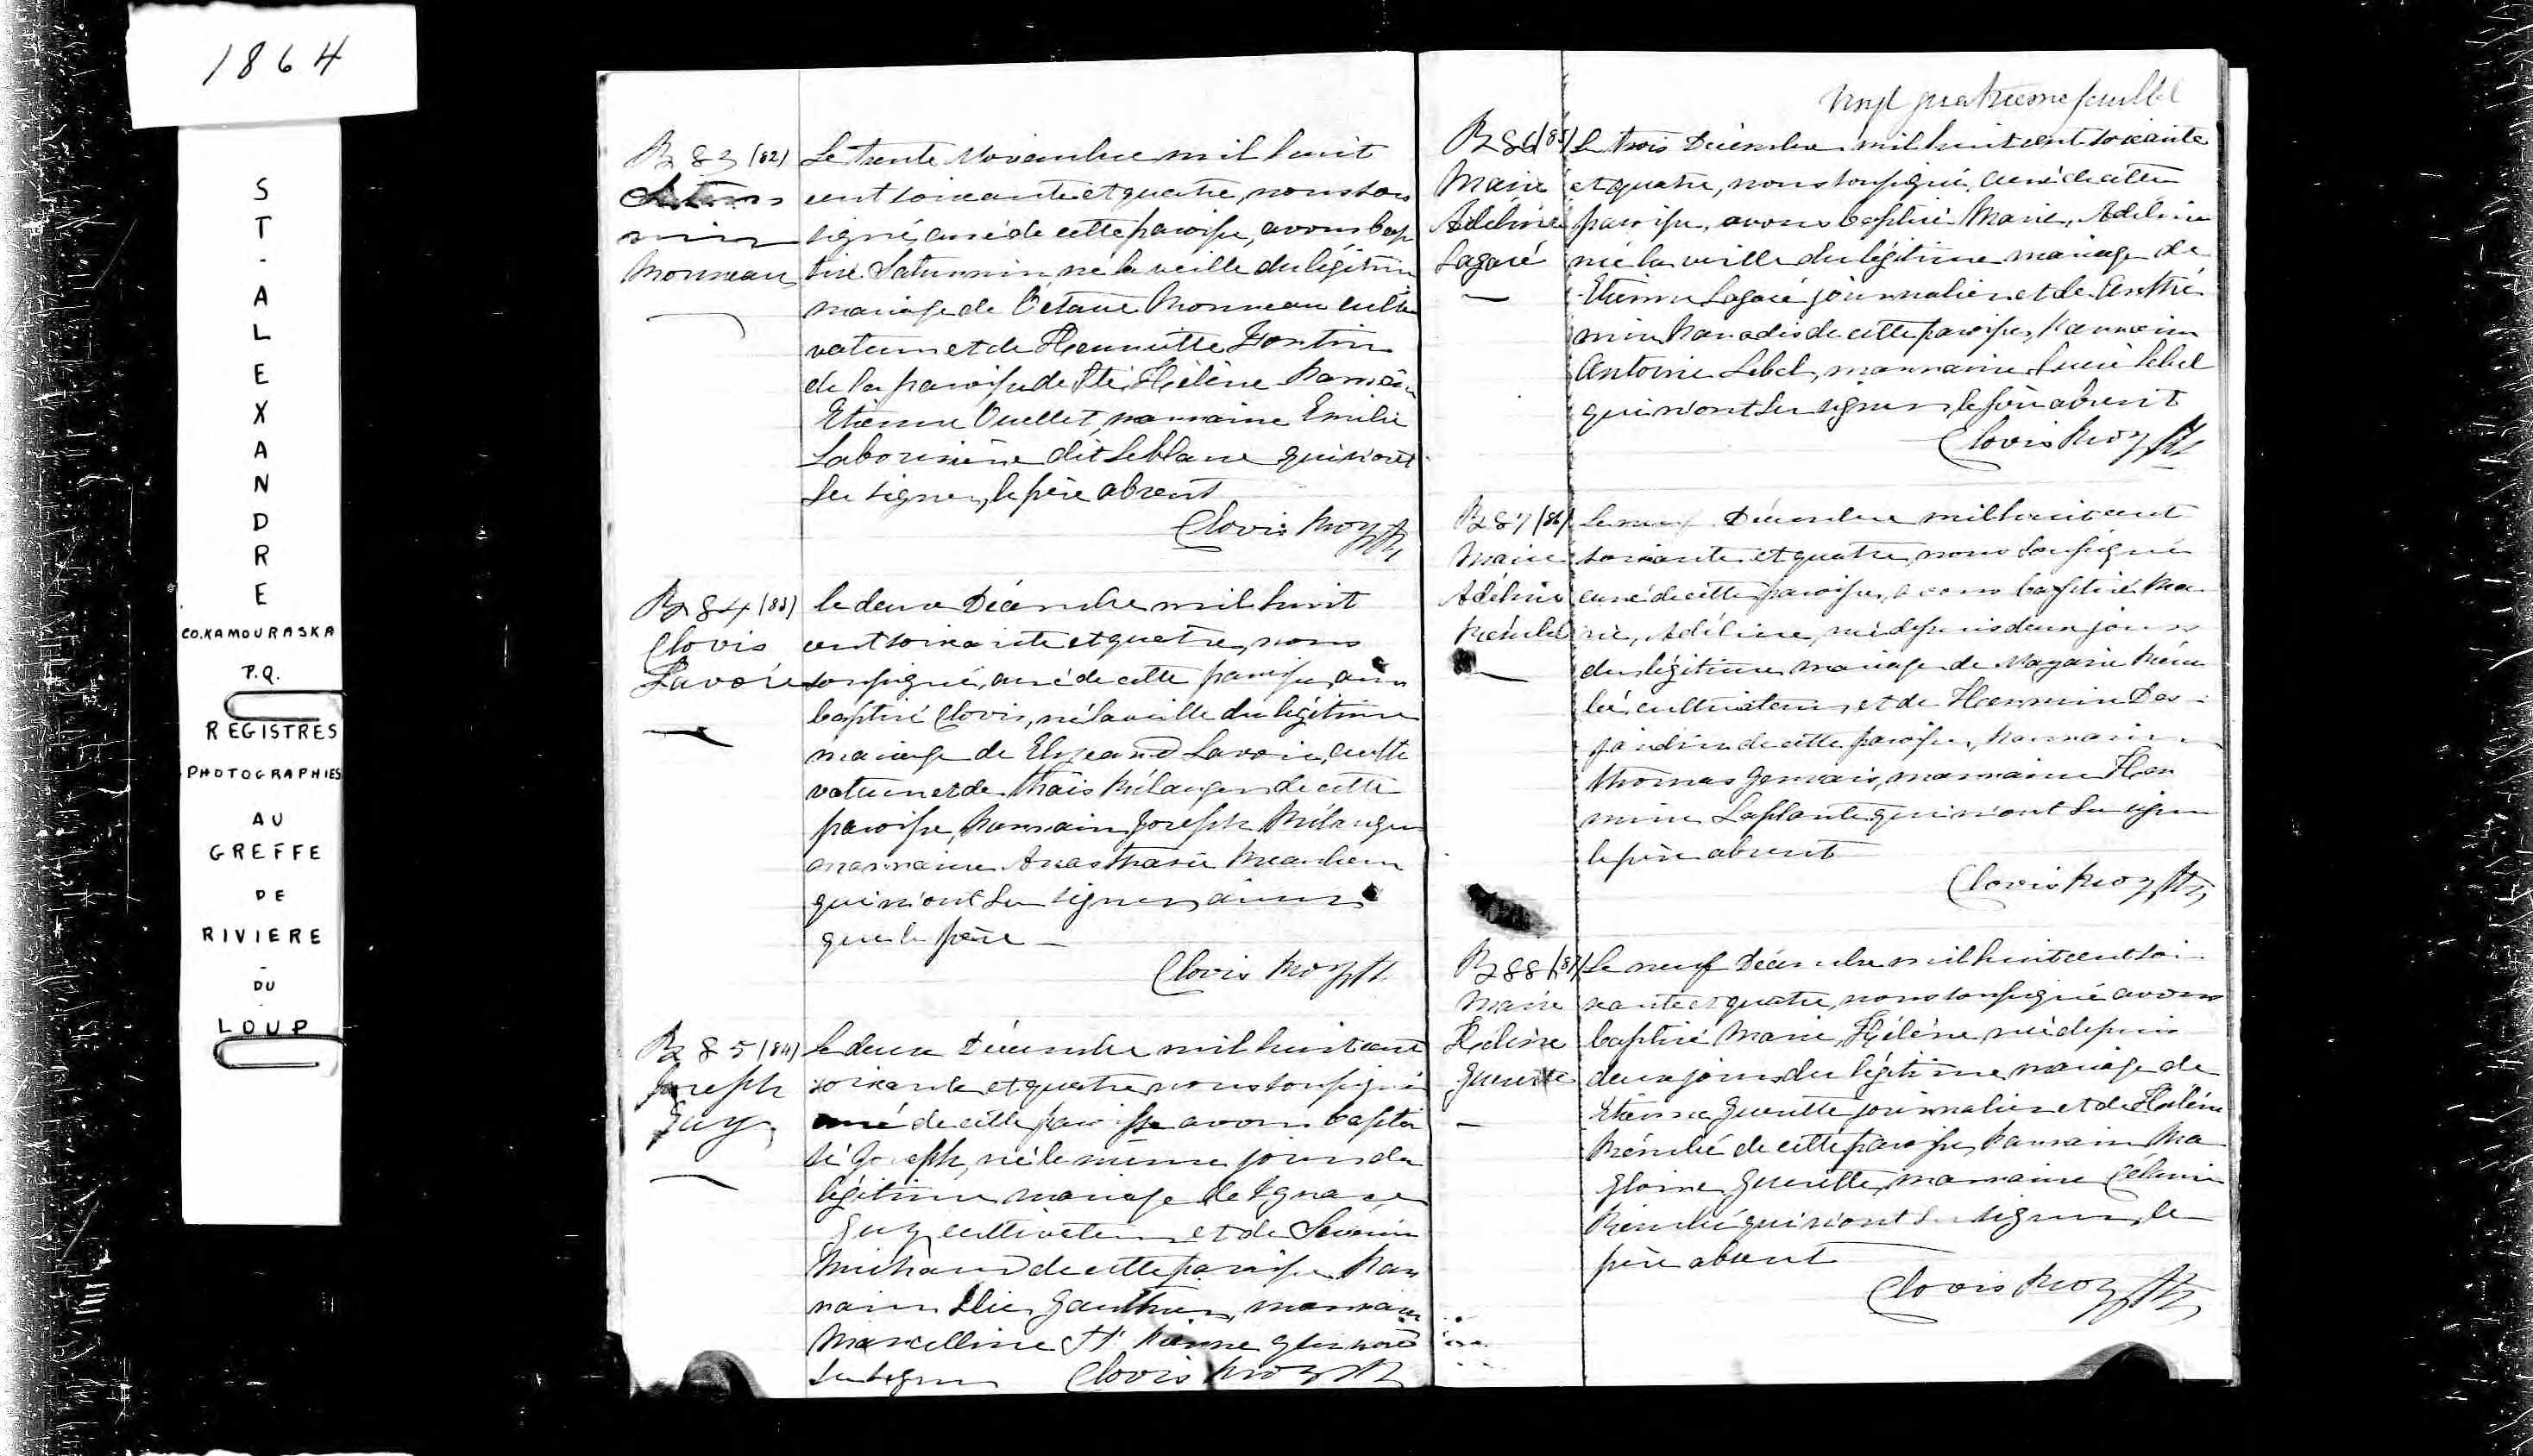 1864
S
T
-
A
L
E
X
A
N
D
R
E
CO.KAMOURASKA
P.Q.
REGISTRES
PHOTOGRAPHIES
AU
GREFFE
DE
RIVIERE
-
DU
LOUP
B 83 (82)
Monneau
Le trente Novembre mil huit
cent soixante et quatre, nous sous
signé, curé de cette paroisse, avons bap
tisé Saturnin, né la veille du légitime
mariage de Octave Monneau culti
vateur et de Henriette Fortin
de la paroisse de Ste Hélène Parrain
Etienne Ouellet, marraine Emilie
dit Leblanc qui n'ont
su signer, le père absent
Clovis Roy Ptr
B 84 (83)
Clovis
Lavoie
le deux Décembre mil huit
cent soixante et quatre, nous
soussigné, curé de cette paroisse, avons
baptisé Clovis, né la veille du légitime
mariage de Elzeard Lavoie, culti
vateur et de Thaïs Bélanger de cette
paroisse, Parrain Joseph Bélanger
marraine Anasthasie
qui n'ont su signer ainsi
que le père
Clovis Roy Ptr
B 85 (84)
Joseph
Guy
Le deux Décembre mil huit cent
soixante et quatre nous soussigné
curé de cette paroisse avons bapti
sé Joseph, né le même jour du
légitime mariage de Ignace
Guy cultivateur et de Séverine
Michaud de cette paroisse Par
rain Elie Gauthier, marraine
Marcelline St Pierre qui n'ont
su signer Clovis Roy Ptr
vingt quatrième feuillet
B 86 (85)
Marie
Adeline
Lagacé
Le trois Décembre mil huit cent soixante
et quatre, nous soussigné, curé de cette
paroisse, avons baptisé Marie, Adeline
née la veille du légitime mariage de
Etienne Lagacé journalier et de Arthé
mise Paradis de cette paroisse, Parrain
Antoine Lebel, marraine Lucie Lebel
qui n'ont su signer, le père absent
Clovis Roy Ptr
B 87 (86)
Marie
Adéline
Bérubé
Le neuf Décembre mil huit cent
soixante et quatre, nous soussigné
curé de cette paroisse, avons baptisé Ma
rie, Adéline, née depuis deux jours
du légitime mariage de Béru
bé, cultivateur, et de Des
jardins de cette paroisse, Parrain
Thomas Gervais, marraine Her
mine Laplante qui n'ont su signer
le père absent
Clovis Roy Ptr
B 88 (87)
Marie
Hélène
Guerette
Le neuf Décembre mil huit cent soi
xante et quatre, nous soussigné avons
baptisé Marie, Hélène, née depuis
deux jours du légitime mariage de
Etienne Guerette journalier et de Hélène
Bérubé de cette paroisse, Parrain Ma
gloire Guerette, marraine Célanire
Bérubé qui n'ont su signer, le
père absent
Clovis Roy Ptr